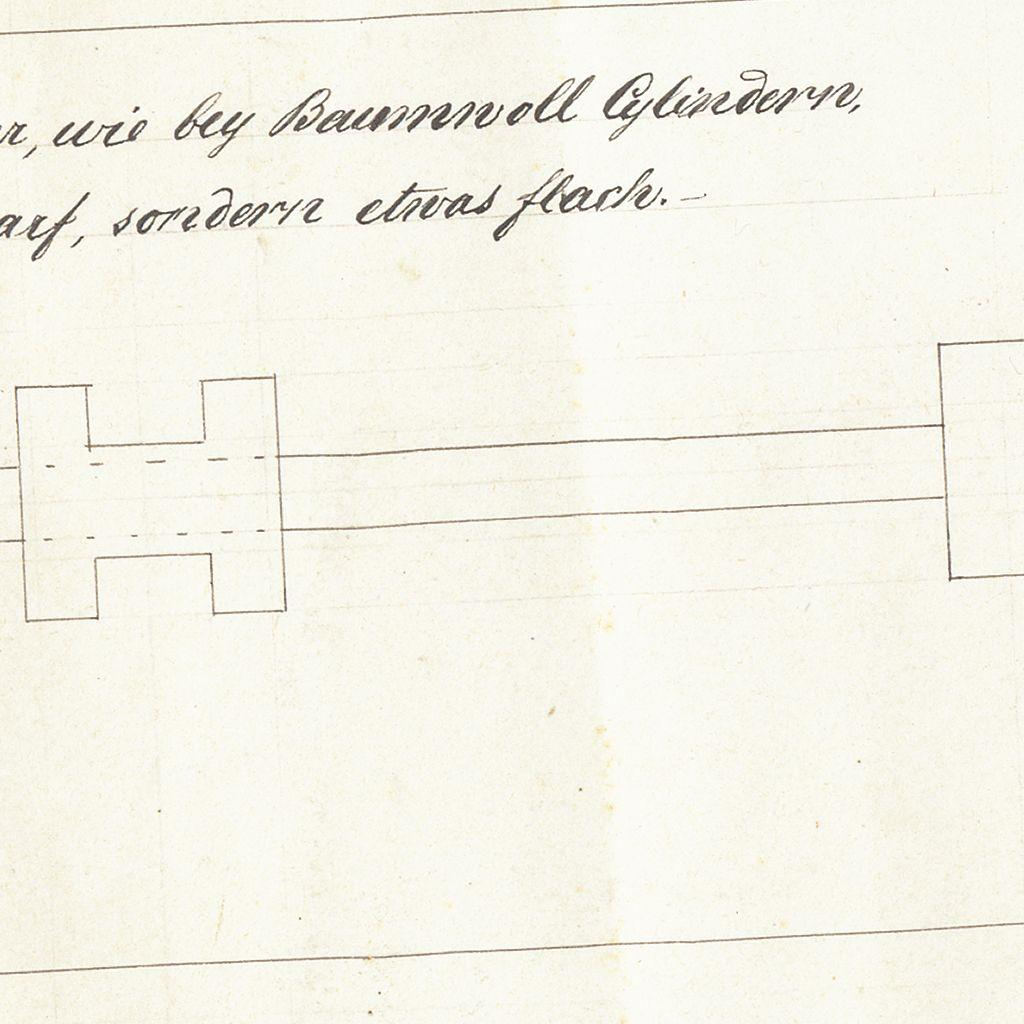 wie bey Baumwoll Cylindern,
sondern etwas flach.-